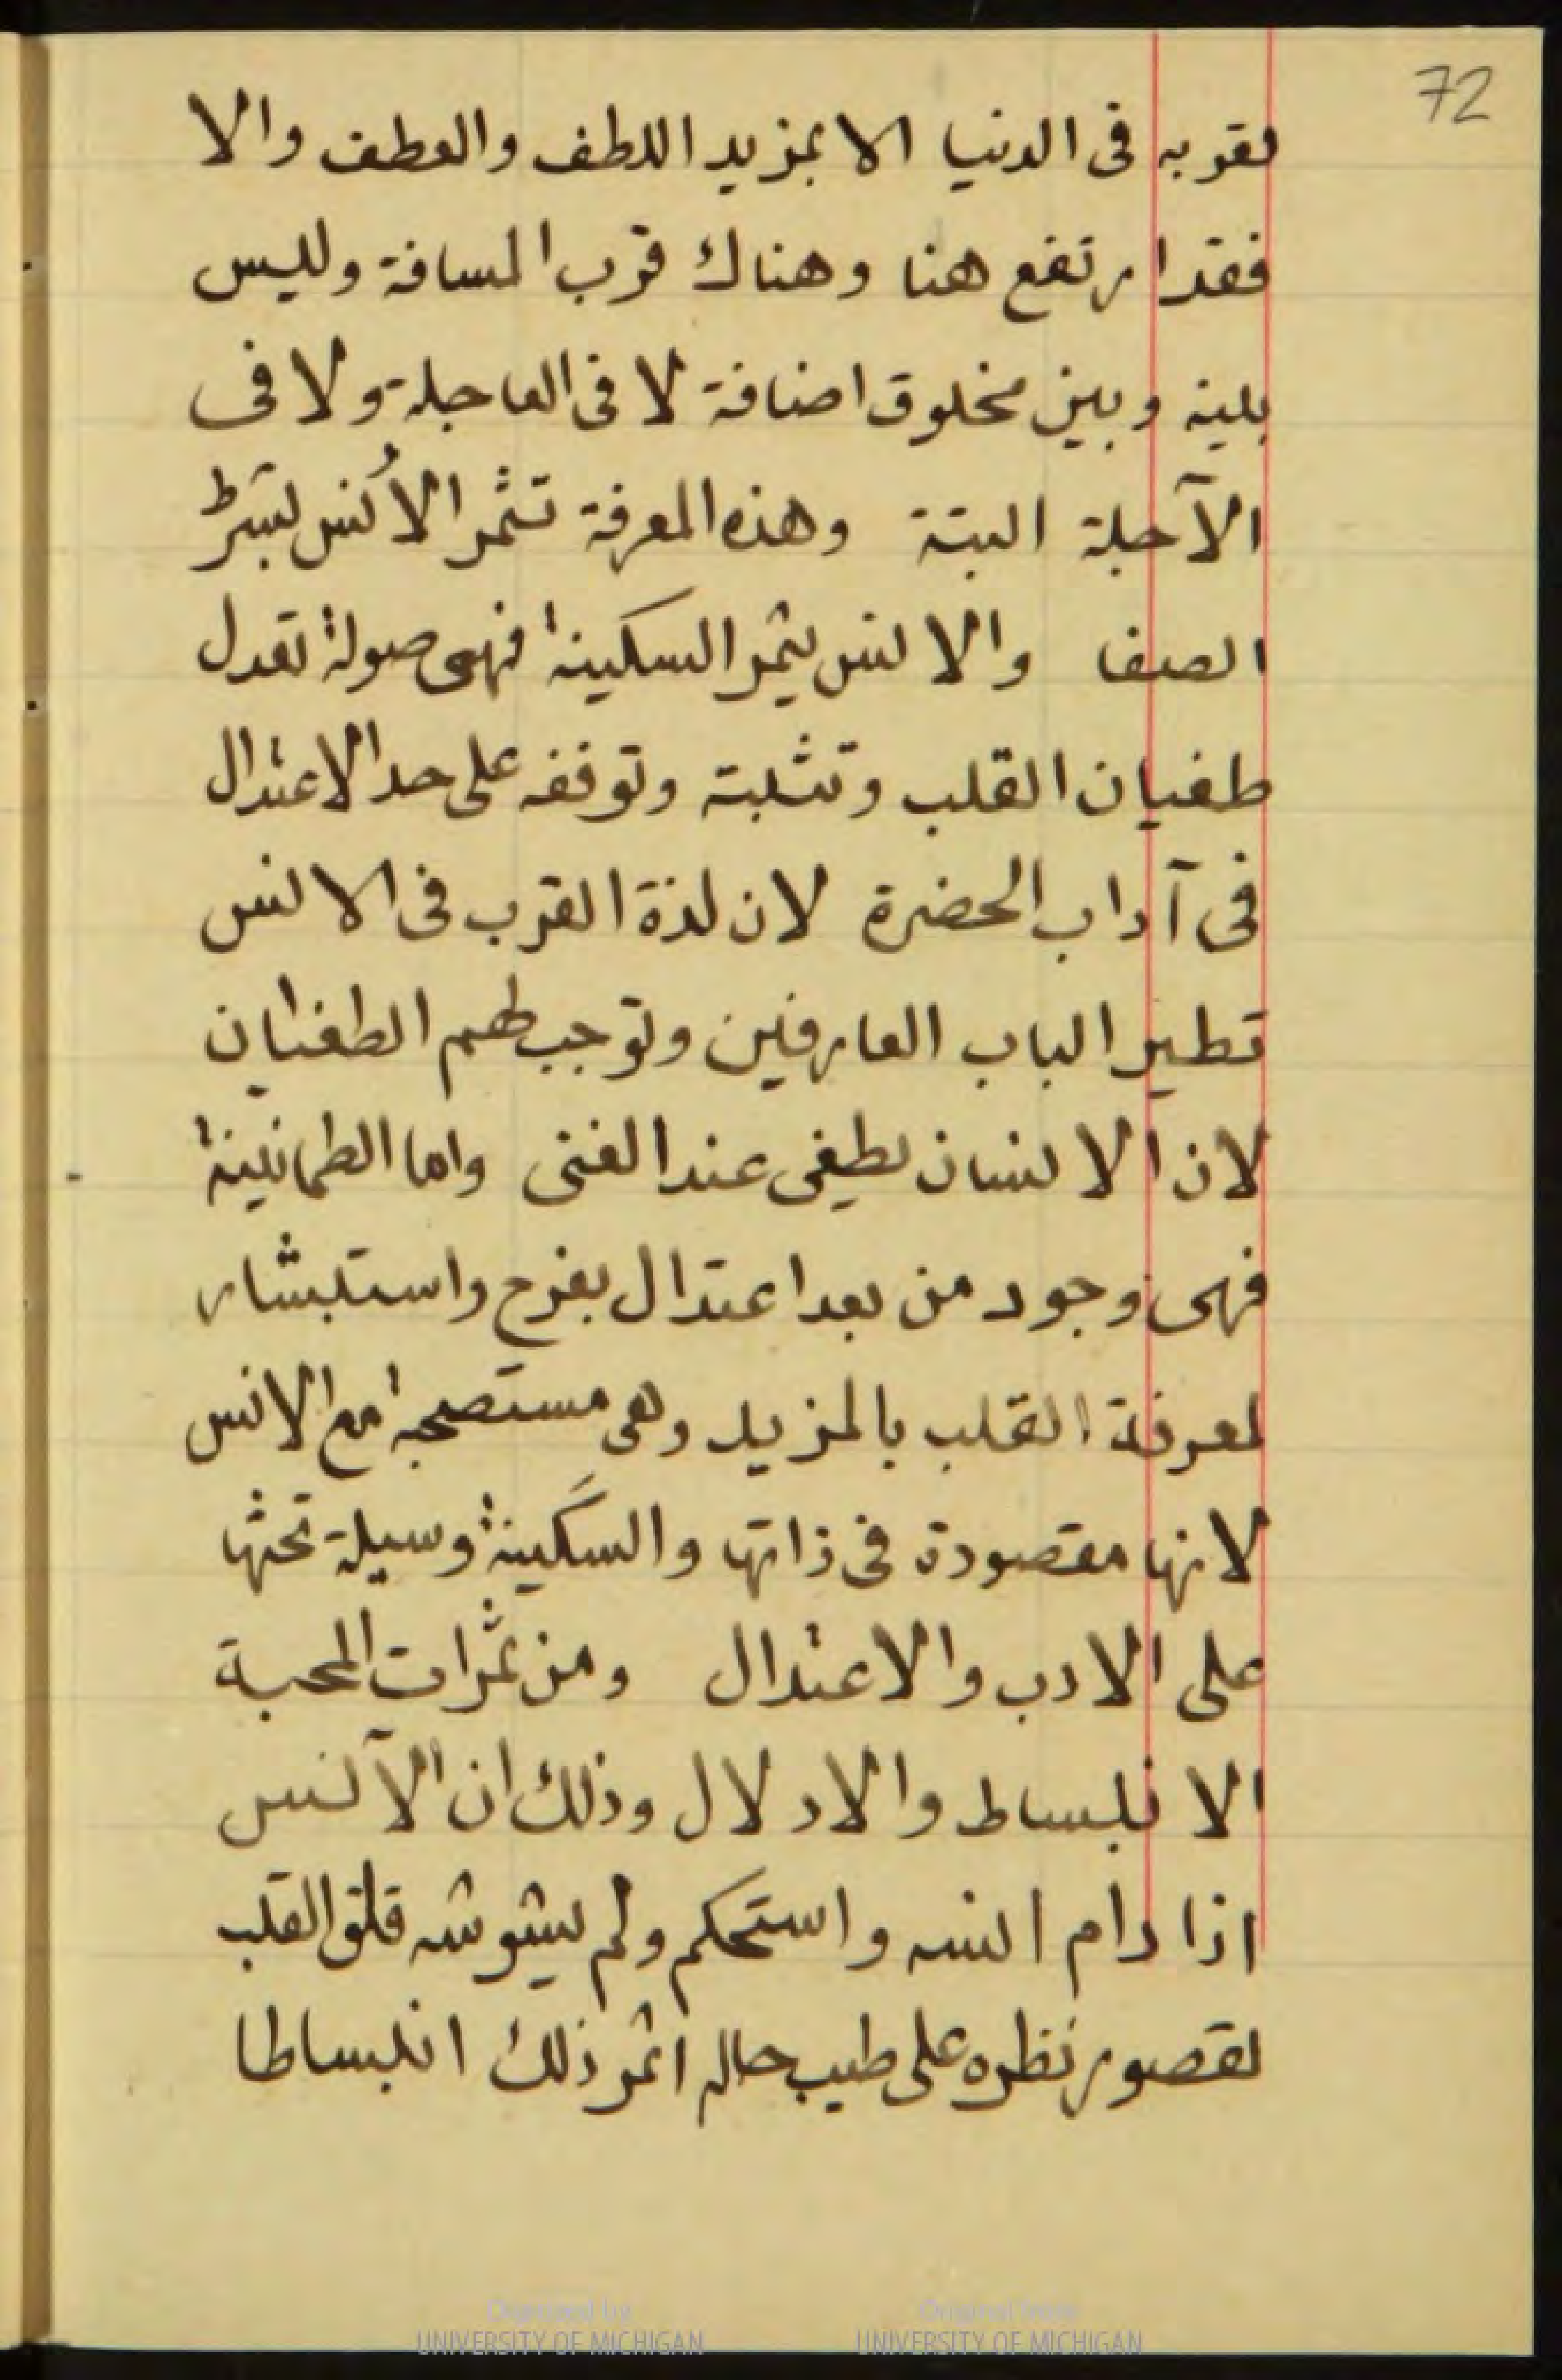 72
بقربه فى الدنيا الا بمزيد اللطف والعطف والا
فقد ارتفع هنا وهناك قرب المسافة وليس
بينه وبين مخلوق اضافة لا فى العاجلة ولا فى
الآجلة البتة وهذه المعرفة تثمر الأُنس بشرط
الصفا والانس يثمر السكينة فهى صولة تعدل
طغيان القلب وتثبته وتوقفه على حد الاعتدال
فى آداب الحضرة لان لذة القرب فى الانس
تطير الباب العارفين وتوجب لهم الطغيان
لان الانسان يطغى عند الغنى واما الطمانينة
فهى وجود من بعد اعتدال بفرح واستبشار
لمعرفة القلب بالمزيد وهى مستصحبة مع الانس
لانها مقصودة فى ذاتها والسَكينة وسيلة تحثها
على الادب والاعتدال ومن ثمرات المحبة
الانبساط والادلال وذلك ان الآنس
اذا دام انسه واستحكم ولم يشوشه قلق القلب
لقصور نظره على طيب حاله اثمر ذلك انبساطا
Digitized by
UNIVERSITY OF MICHIGAN
Original from
UNIVERSITY OF MICHIGAN